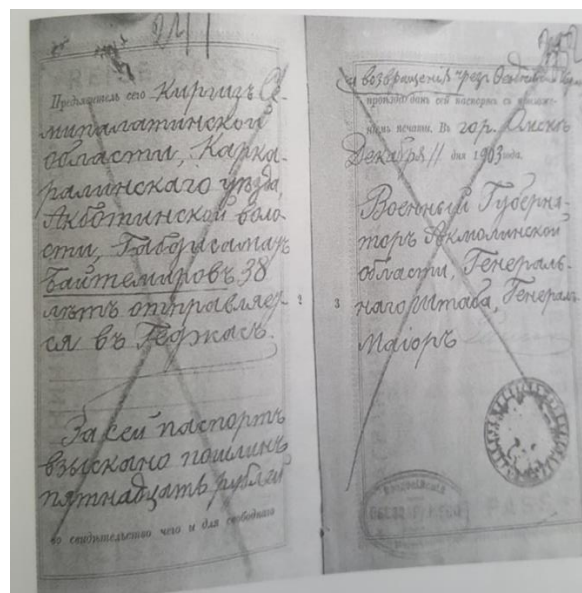 241
Предъявитель сего Киргизъ Се-
мипалатинской
области, Карка-
ралинскаго уѣзда,
Акботинской воло-
сти, Габдусамат
Байтемировъ, 38
лѣтъ отправляет-
ся въ Геджасъ.
За сей паспортъ
взыскано пошлинъ
пятнадцать рублей
во свидѣтельство чего и для свободнаго
2
и возвращенія чрез
проѣзда данъ сей паспортъ съ приложе-
ніемъ печати. Въ гор. Омскъ
Декабря 11 дня 1903 года.
Военный Губерна-
торъ Акмолинской
области, Генераль-
наго Штаба, Генералъ
Маіоръ
3